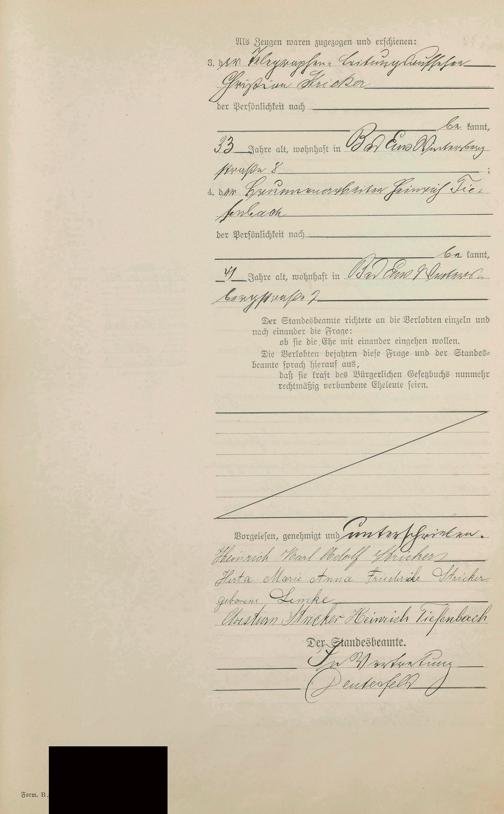 Als Zeugen waren zugezogen und erschienen:
3. der Telegraphen-Leitungsaufseher
Christian Stricker
der Persönlichkeit nach
be kannt,
33 Jahre alt, wohnhaft in Bad Ems Winterberg
straße 8 ;
4. der Brunnenarbeiter Heinrich Tie-
fenbach
der Persönlichkeit nach
be kannt,
41 Jahre alt, wohnhaft in Bad Ems Winters-
bergstraße 7
Der Standesbeamte richtete an die Verlobten einzeln und
nach einander die Frage:
ob sie die Ehe mit einander eingehen wollen.
Die Verlobten bejahten diese Frage und der Standes-
beamte sprach hierauf aus,
daß sie kraft des Bürgerlichen Gesetzbuchs nunmehr
rechtmäßig verbundene Eheleute seien.
Vorgelesen, genehmigt und unterschrieben.
Heinrich Karl Adolf Stricker
Herta Marie Anna Friedricke Stricker
geborene Lemke
Christian Stricker Heinrich Tiefenbach
Der Standesbeamte.
In Vertretung
Form. B.